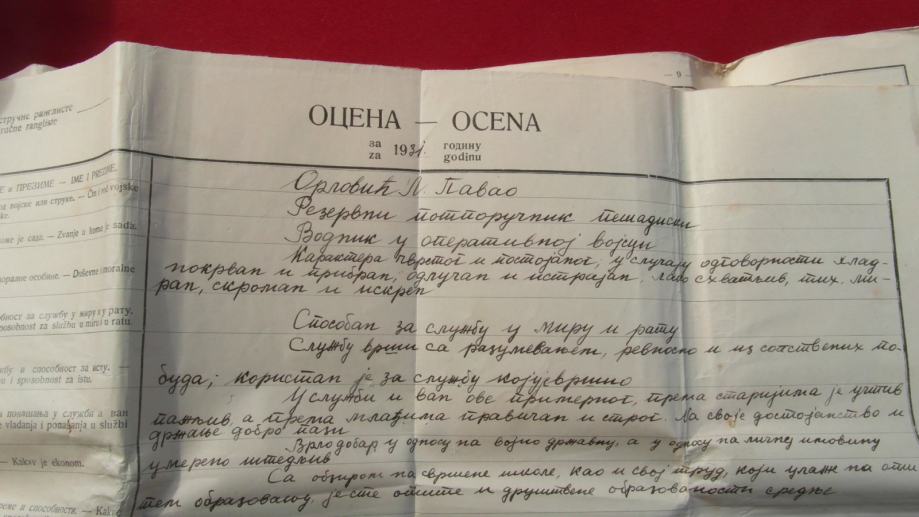 — 9 —
стручне ранглисте
ručne ranglisor
ОЦЕНА — OCENA
за 1931. годину
za godinu
Е и ПРЕЗИМЕ — IME I PREZIME.
од војске или струке. — Čin i rod vojske
ke.
коме је сада. — Zvanje u kome je sada.
оралне особине. — Duševne i moralne
бност за службу у миру и рату.
sposobnost za službu u miru i ratu.
жбу и способност за исту. —
u i sposobnost za istu.
а понашања у служби и ван
e vladanja i ponašanja u službi
— Kakav je ekonom.
реме и способности. — Kakve
Орловић Павао
Резервни потпоручник пешадиски
Водник у оперативној војсци
Карактера чврстог и постојаног, у случају одговорности хлад-
нокрван и прибран, одлучан и истрајан, лако схватљив, тих, ми-
ран, скроман и искрен
Способан за службу у миру и рату
Службу врши са разумевањем, ревносно и из сопствених по-
буда; користан је за службу коју је вршио
У служби и ван ове примерног, према старијима је учтив
пажљив, а према млађима правичан и строг. На своје достојанство и
држање добро пази
Врло добар у односу на војно државну, а у односу на личну имовину
умерено штедљив
Са обзиром на свршене школе, као и свој труд, који улаже на опш
тем образовању јесте опште и друштвене образованости средње